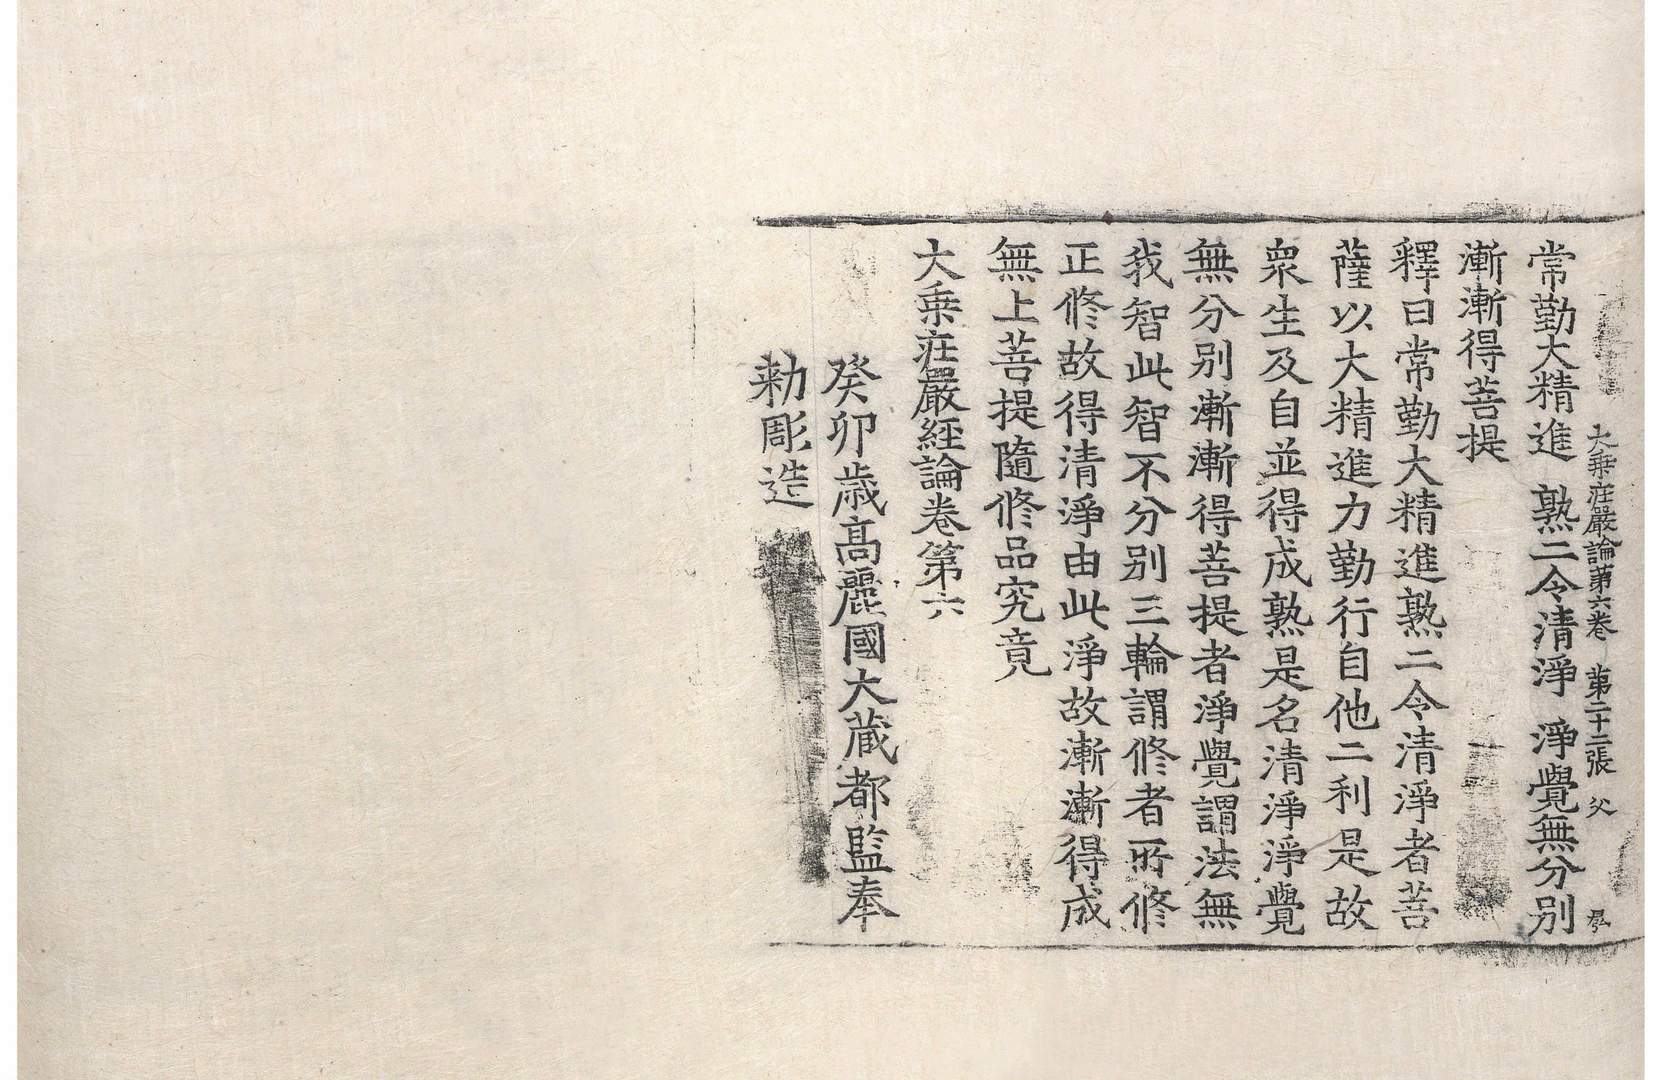 大乗莊嚴論第六卷　第二十二張　父
常勤大精進　熟二令清淨　淨覺無分別
漸漸得菩提
釋曰常勤大精進熟二令清淨者菩
薩以大精進力勤行自他二利是故
衆生及自並得成熟是名清淨淨覺
無分别漸漸得菩提者淨覺謂法無
我智此智不分别三輪謂修者所修
正修故得清淨由此淨故漸漸得成
無上菩提隨修品究竟
大乗莊嚴經論卷第六
癸卯歳髙麗國大蔵都監奉
勑彫造